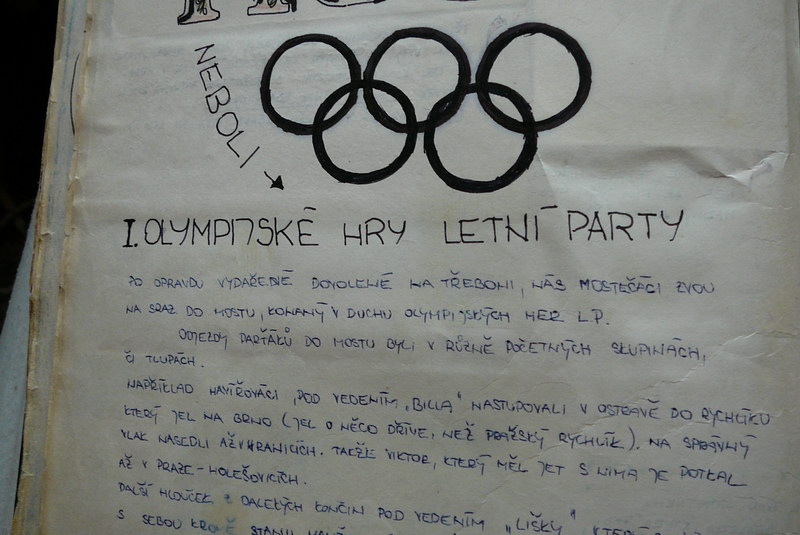 NEBOLI
I. OLYMPIJSKÉ HRY LETNÍ PARTY
PO OPRAVDU VYDAŘENÉ DOVOLENÉ NA TŘEBONI, NÁS MOSTEČÁCI ZVOU
NA SRAZ DO MOSTU, KONANÝ V DUCHU OLYMPIJSKÝCH HER L.P.
ODJEZDY PARŤÁKŮ DO MOSTU BYLI V RŮZNĚ POČETNÝCH SKUPINÁCH,
ČI TLUPÁCH.
NAPŘÍKLAD HAVÍŘOVÁCI, POD VEDENÍM „BILLA" NASTUPOVALI V OSTRAVĚ DO RYCHLÍKU
KTERÝ JEL NA BRNO (JEL O NĚCO DŘÍVE, NEŽ PRAŽSKÝ RYCHLÍK). NA SPRÁVNÝ
VLAK NASEDLI AŽ V HRANICÍCH. TAKŽE VIKTOR, KTERÝ MĚL JET S NIMA JE POTKAL
AŽ V PRAZE-HOLEŠOVICÍCH.
DALŠÍ HLOUČEK Z DALEKÝCH KONČIN POD VEDENÍM „LIŠKY"
S SEBOU KROMĚ STANU